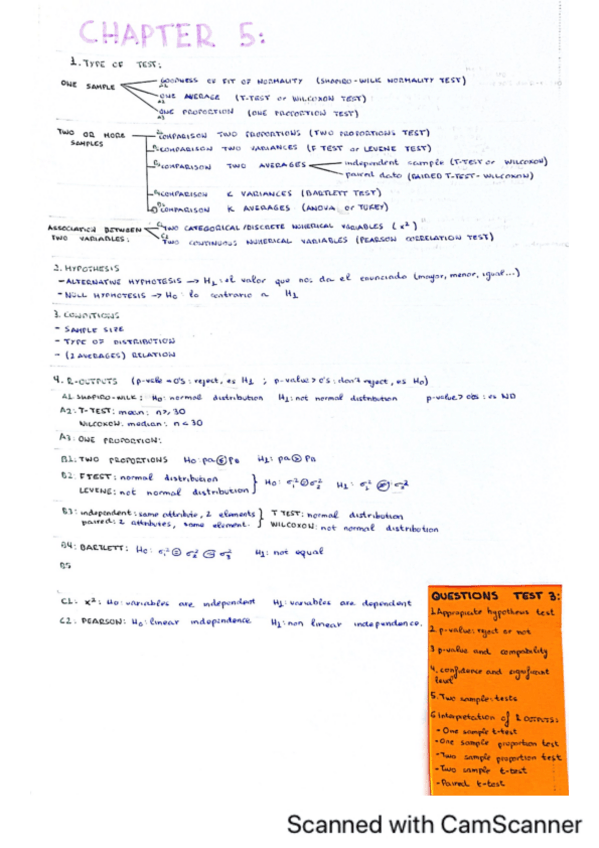 CHAPTER 5:
1. TYPE OF TEST:
ONE SAMPLE
GOODNESS OF FIT OF NORMALITY (SHAPIRO-WILK NORMALITY TEST)
A2 ONE AVERAGE (T-TEST or WILCOXON TEST)
A3 ONE PROPORTION (ONE PROPORTION TEST)
TWO OR MORE SAMPLES
COMPARISON TWO PROPORTIONS (TWO PROPORTIONS TEST)
COMPARISON TWO VARIANCES (F TEST or LEVENE TEST)
COMPARISON TWO AVERAGES
independent sample (T-TEST or WILCOXON)
paired data (PAIRED T-TEST - WILCOXON)
COMPARISON K VARIANCES (BARTLETT TEST)
COMPARISON K AVERAGES (ANOVA or TUKEY)
ASSOCIATION BETWEEN TWO VARIABLES:
TWO CATEGORICAL/DISCRETE NUMERICAL VARIABLES (x²)
TWO CONTINUOUS NUMERICAL VARIABLES (PEARSON CORRELATION TEST)
2. HYPOTHESIS
- ALTERNATIVE HYPMOTESIS → H1: el valor que nos da el enunciado (mayor, menor, igual...)
- NULL HYPMOTESIS → H0: lo contrario a H1
3. CONDITIONS
- SAMPLE SIZE
- TYPE OF DISTRIBUTION
- (2 AVERAGES) RELATION
4. R-OUTPUTS (p-value 0'5: reject, es H1 ; p-value > 0's: don't reject, es H0)
A1. SHAPIRO-WILK: H0: normal distribution H1: not normal distribution p-value > 0'05: es ND
A2: T-TEST: mean: n ≥ 30
WILCOXON: median: n < 30
A3: ONE PROPORTION:
B1: TWO PROPORTIONS H0: pA = pB H1: pA pB
B2: F TEST: normal distribution
LEVENE: not normal distribution
H0: σ1² = σ2² H1: σ1² ≠ σ2²
B3: independent: same attribute, 2 elements
paired: 2 attributes, same element.
T TEST: normal distribution
WILCOXON: not normal distribution
B4: BARTLETT: H0: σ1² = σ2² = σ3² H1: not equal
B5
C1: x²: H0: variables are independent H1: variables are dependent
C2: PEARSON: H0: linear independence H1: non linear independence.
QUESTIONS TEST 3:
1. Appropiate hypothesis test
2. p-value: reject or not
3. p-value and compatibility
4. confidence and significant level
5. Two sample tests
6. Interpretation of R OUTPUTS:
- One sample t-test
- One sample proportion test
- Two sample proportion test
- Two sample t-test
- Paired t-test
Scanned with CamScanner